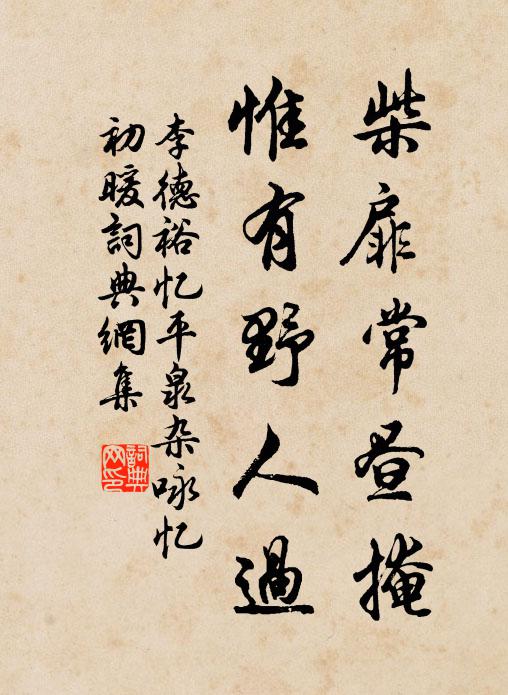 柴扉常昼掩
惟有野人過
李德裕忆平泉杂咏忆
初暖詞典網集
詞典网印